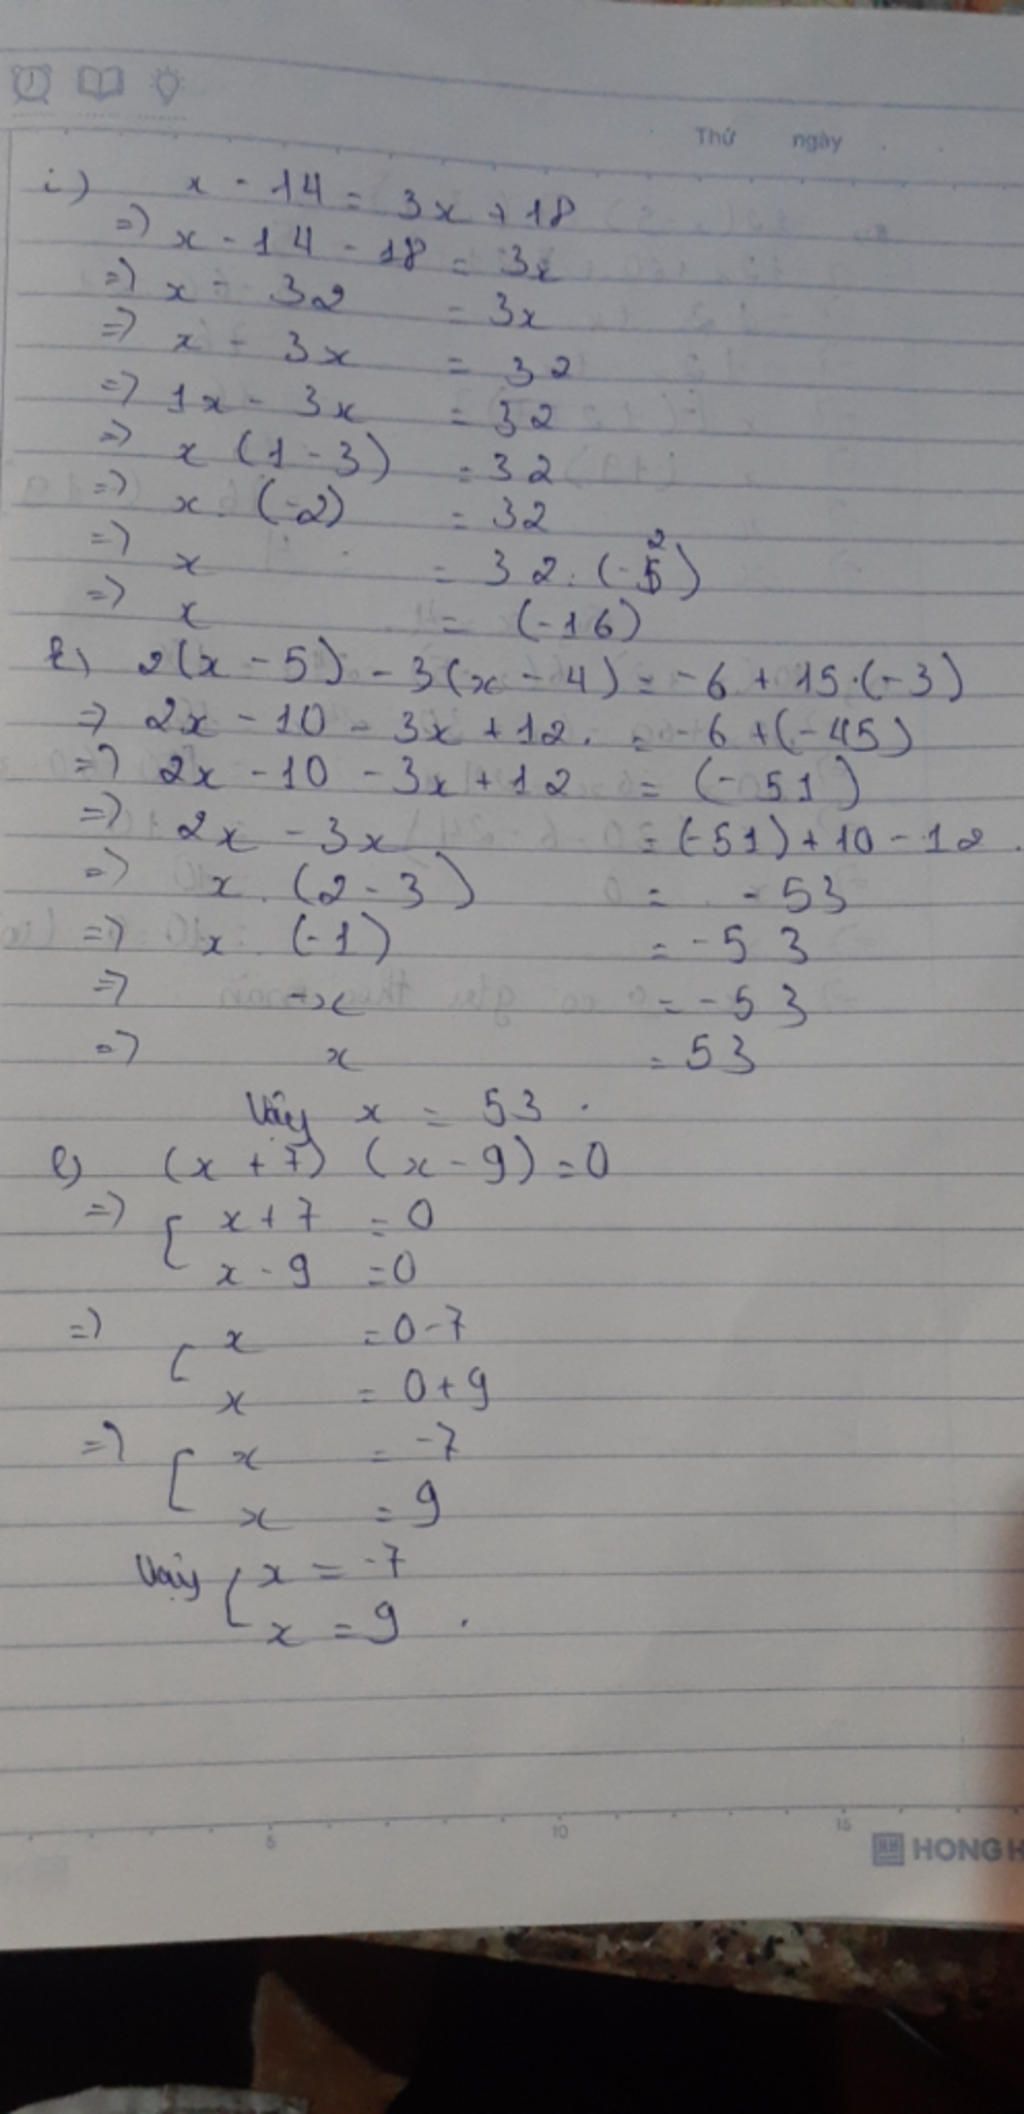 Thứ ngày
i) x - 14 = 3x + 18
=) x - 14 - 18 = 3x
=) x - 32 = 3x
=) x - 3x = 32
=) 1x - 3x = 32
=) x (1 - 3) = 32
=) x . (-2) = 32
=) x = 32 : (-2)
=) x = (-16)
k) 2(x - 5) - 3(x - 4) = -6 + 15.(-3)
=) 2x - 10 - 3x + 12 = -6 + (-45)
=) 2x - 10 - 3x + 12 = (-51)
=) 2x - 3x = (-51) + 10 - 12
=) x . (2 - 3) = -53
=) x . (-1) = -53
=) -x = -53
=) x = 53
Vậy x = 53 .
l) (x + 7) (x - 9) = 0
=) [ x + 7 = 0
x - 9 = 0
=) [ x = 0 - 7
x = 0 + 9
=) [ x = -7
x = 9
Vậy [ x = -7
x = 9 .
5 10 15
HONG H